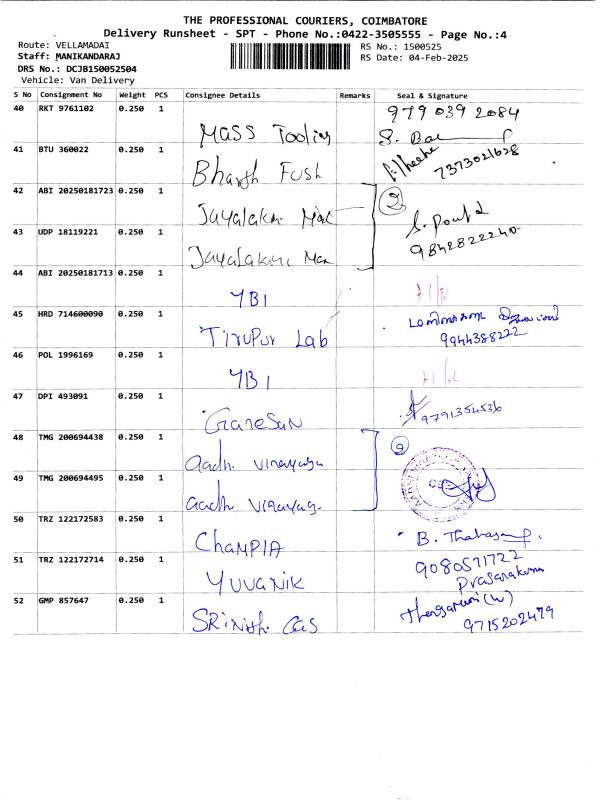 THE PROFESSIONAL COURIERS, COIMBATORE
Delivery Runsheet - SPT - Phone No.:0422-3505555 - Page No.:4
Route: VELLAMADAI
RS No.: 1500525
Staff: MANIKANDARAJ
RS Date: 04-Feb-2025
DRS No.: DCJB150052504
Vehicle: Van Delivery
S No Consignment No Weight PCS Consignee Details Remarks Seal & Signature
40 RKT 9761102 0.250 1 MASS Tooling 979 039 2084
41 BTU 360022 0.250 1 Bharth FUSh 7373021628
42 ABI 20250181723 0.250 1 Jayalakmi Mac 2
43 UDP 18119221 0.250 1 Jayalakmi Mac 9842822240
44 ABI 20250181713 0.250 1 YBI
45 HRD 714600090 0.250 1 TIRUPUR Lab 9944388222
46 POL 1996169 0.250 1 YBI
47 DPI 493091 0.250 1 GANESAN 9791354536
48 TMG 200694438 0.250 1 aadhi vinayaga 2
49 TMG 200694495 0.250 1 aadhi vinayaga
50 TRZ 122172583 0.250 1 CHAMPIA B.
51 TRZ 122172714 0.250 1 YUVANIK 9080571722
Prasanakumar
52 GMP 857647 0.250 1 SRiNith Gas 9715202479